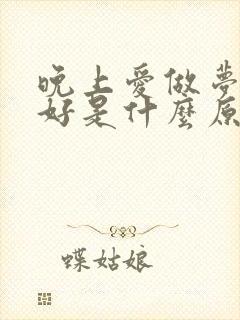 晚上愛做夢
好是什麼原
蝶姑娘